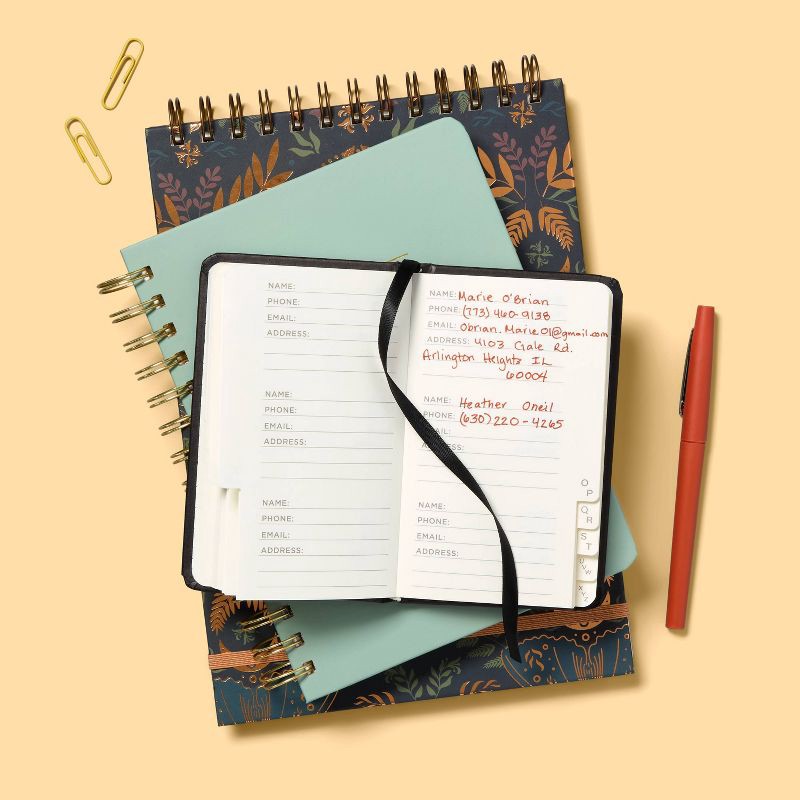 NAME:
PHONE:
EMAIL:
ADDRESS:
NAME:
PHONE:
EMAIL:
ADDRESS:
NAME:
PHONE:
EMAIL:
ADDRESS:
NAME: Marie O'Brian
PHONE: (773) 460-9138
EMAIL: Obrian.Marie01@gmail.com
ADDRESS: 4103 Gale Rd.
Arlington Heights IL
60004
NAME: Heather Oneil
PHONE: (630) 220-4265
EMAIL:
ADDRESS:
NAME:
PHONE:
EMAIL:
ADDRESS:
O P
Q R
S T
U V W
X Y Z